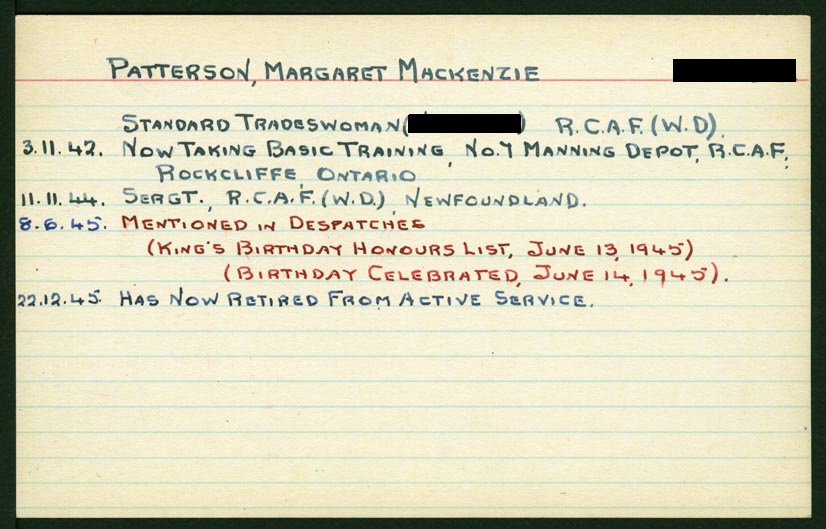 PATTERSON, MARGARET MACKENZIE
STANDARD TRADESWOMAN( ) R.C.A.F. (W.D).
3.11.42. NOW TAKING BASIC TRAINING, NO.7 MANNING DEPOT, R.C.A.F,
ROCKCLIFFE, ONTARIO
11.11.44. SERGT., R.C.A.F. (W.D.), NEWFOUNDLAND.
8.6.45. MENTIONED IN DESPATCHES
(KING'S BIRTHDAY HONOURS LIST, JUNE 13, 1945)
(BIRTHDAY CELEBRATED, JUNE 14, 1945).
22.12.45. HAS NOW RETIRED FROM ACTIVE SERVICE.